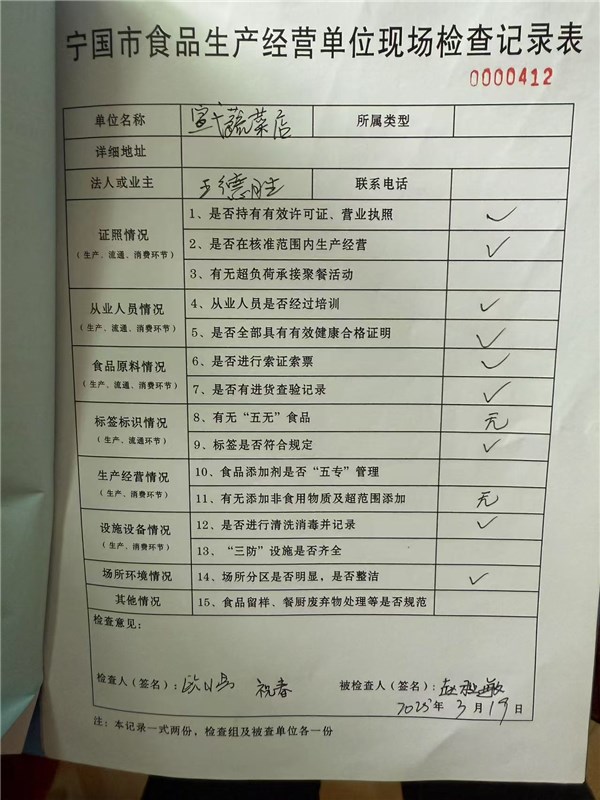 宁国市食品生产经营单位现场检查记录表
0000412
单位名称 宣 蔬菜店 所属类型
详细地址
法人或业主 王德胜 联系电话
证照情况
(生产、流通、消费环节)
1、是否持有有效许可证、营业执照 ✓
2、是否在核准范围内生产经营 ✓
3、有无超负荷承接聚餐活动
从业人员情况
(生产、流通、消费环节)
4、从业人员是否经过培训 ✓
5、是否全部具有有效健康合格证明 ✓
食品原料情况
(生产、流通、消费环节)
6、是否进行索证索票 ✓
7、是否有进货查验记录 ✓
标签标识情况
(生产、流通环节)
8、有无“五无”食品 无
9、标签是否符合规定 ✓
生产经营情况
(生产、消费环节)
10、食品添加剂是否“五专”管理
11、有无添加非食用物质及超范围添加 无
设施设备情况
(生产、消费环节)
12、是否进行清洗消毒并记录 ✓
13、“三防”设施是否齐全
场所环境情况 14、场所分区是否明显，是否整洁 ✓
其他情况 15、食品留样、餐厨废弃物处理等是否规范
检查意见:
检查人(签名): 祝春 被检查人(签名): 赵 敏
2025年3月19日
注: 本记录一式两份，检查组及被查单位各一份